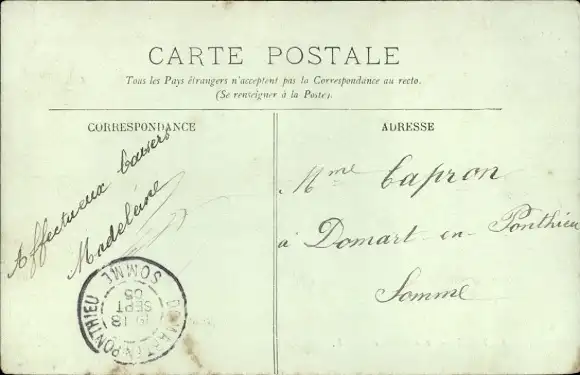 CARTE POSTALE
Tous les Pays étrangers n'acceptent pas la Correspondance au recto.
(Se renseigner à la Poste).
CORRESPONDANCE
Affectueux baisers
Madeleine
ADRESSE
Mme Capron
à Domart-en-Ponthieu
Somme
DOMART-EN-PONTHIEU
18
SEPT
05
SOMME